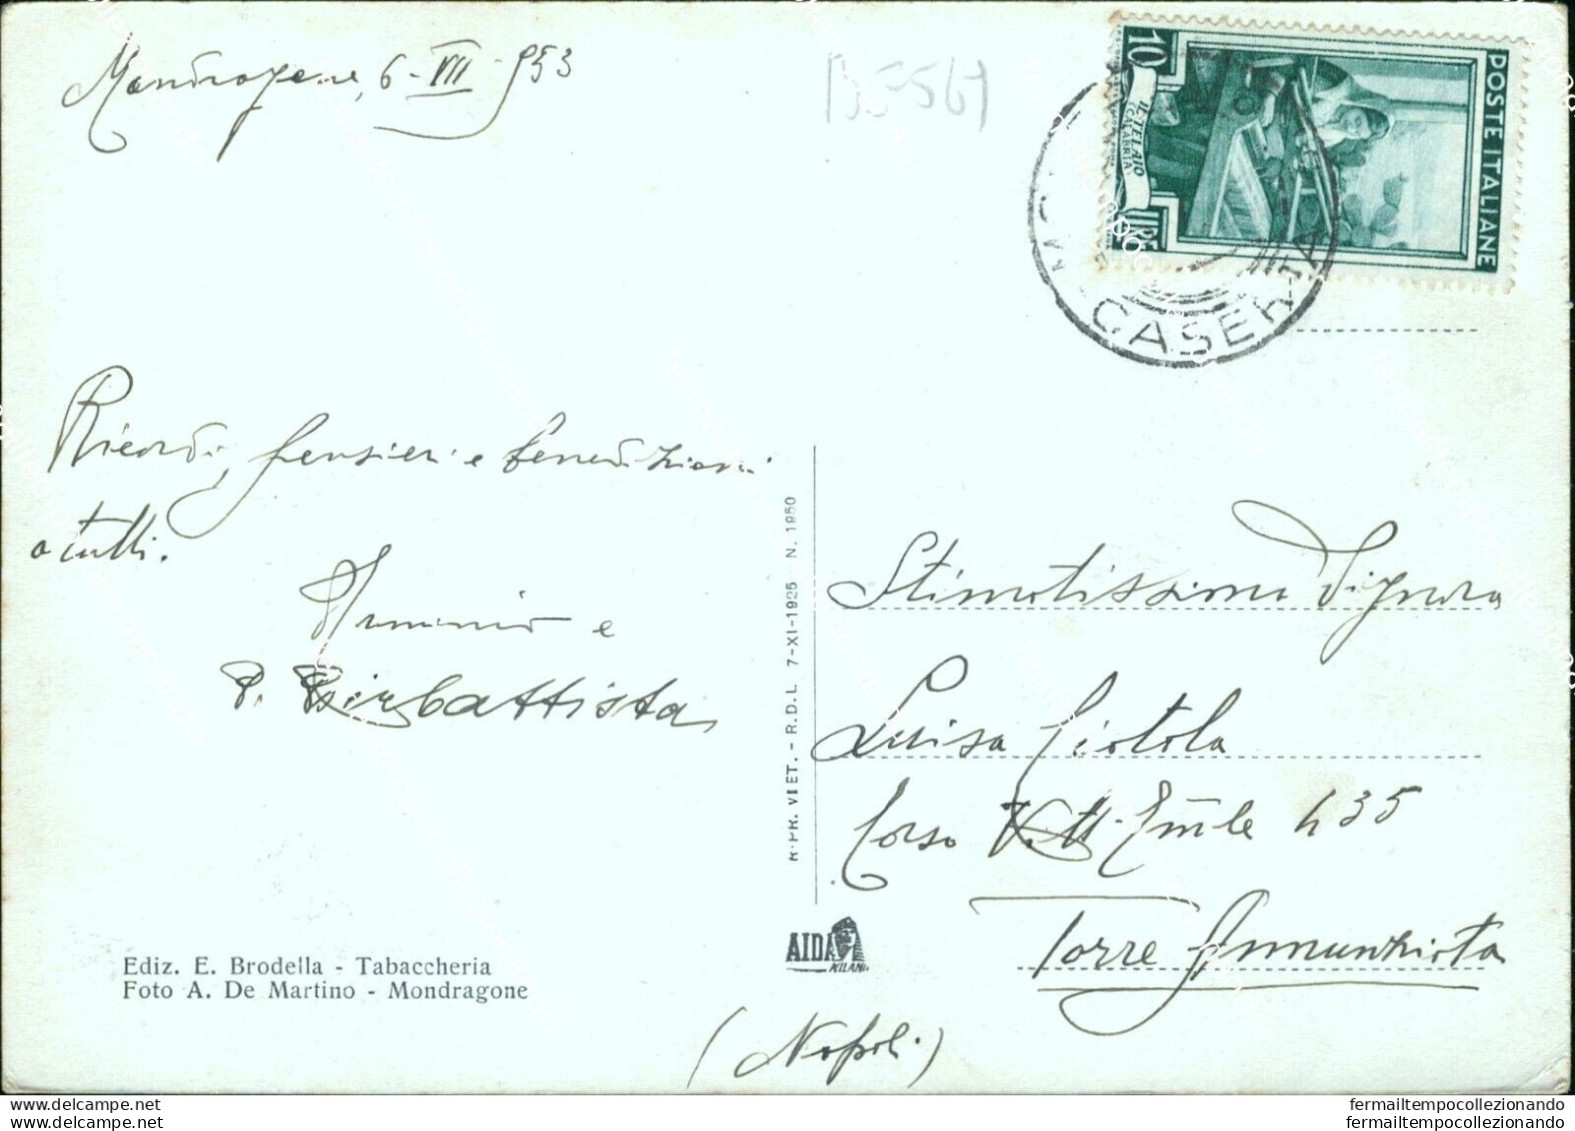 Mondragone, 6-VII-953
B5567
10
IL TELAIO
(CALABRIA)
LIRE
POSTE ITALIANE
CASERTA
Ricordi, pensieri e benedizioni
a tutti.
e
P. Birbattista
R.PR. VIET. - R.D.L. 7-XI-1925 N. 1950
Stimatissima Signora
Luisa Ciotola
Corso Vitt. Em̅le 435
Torre Annunziata
(Napoli)
AIDA
MILANO
Ediz. E. Brodella - Tabaccheria
Foto A. De Martino - Mondragone
fermailtempocollezionando
fermailtempocollezionando
fermailtempocollezionando
fermailtempocollezionando